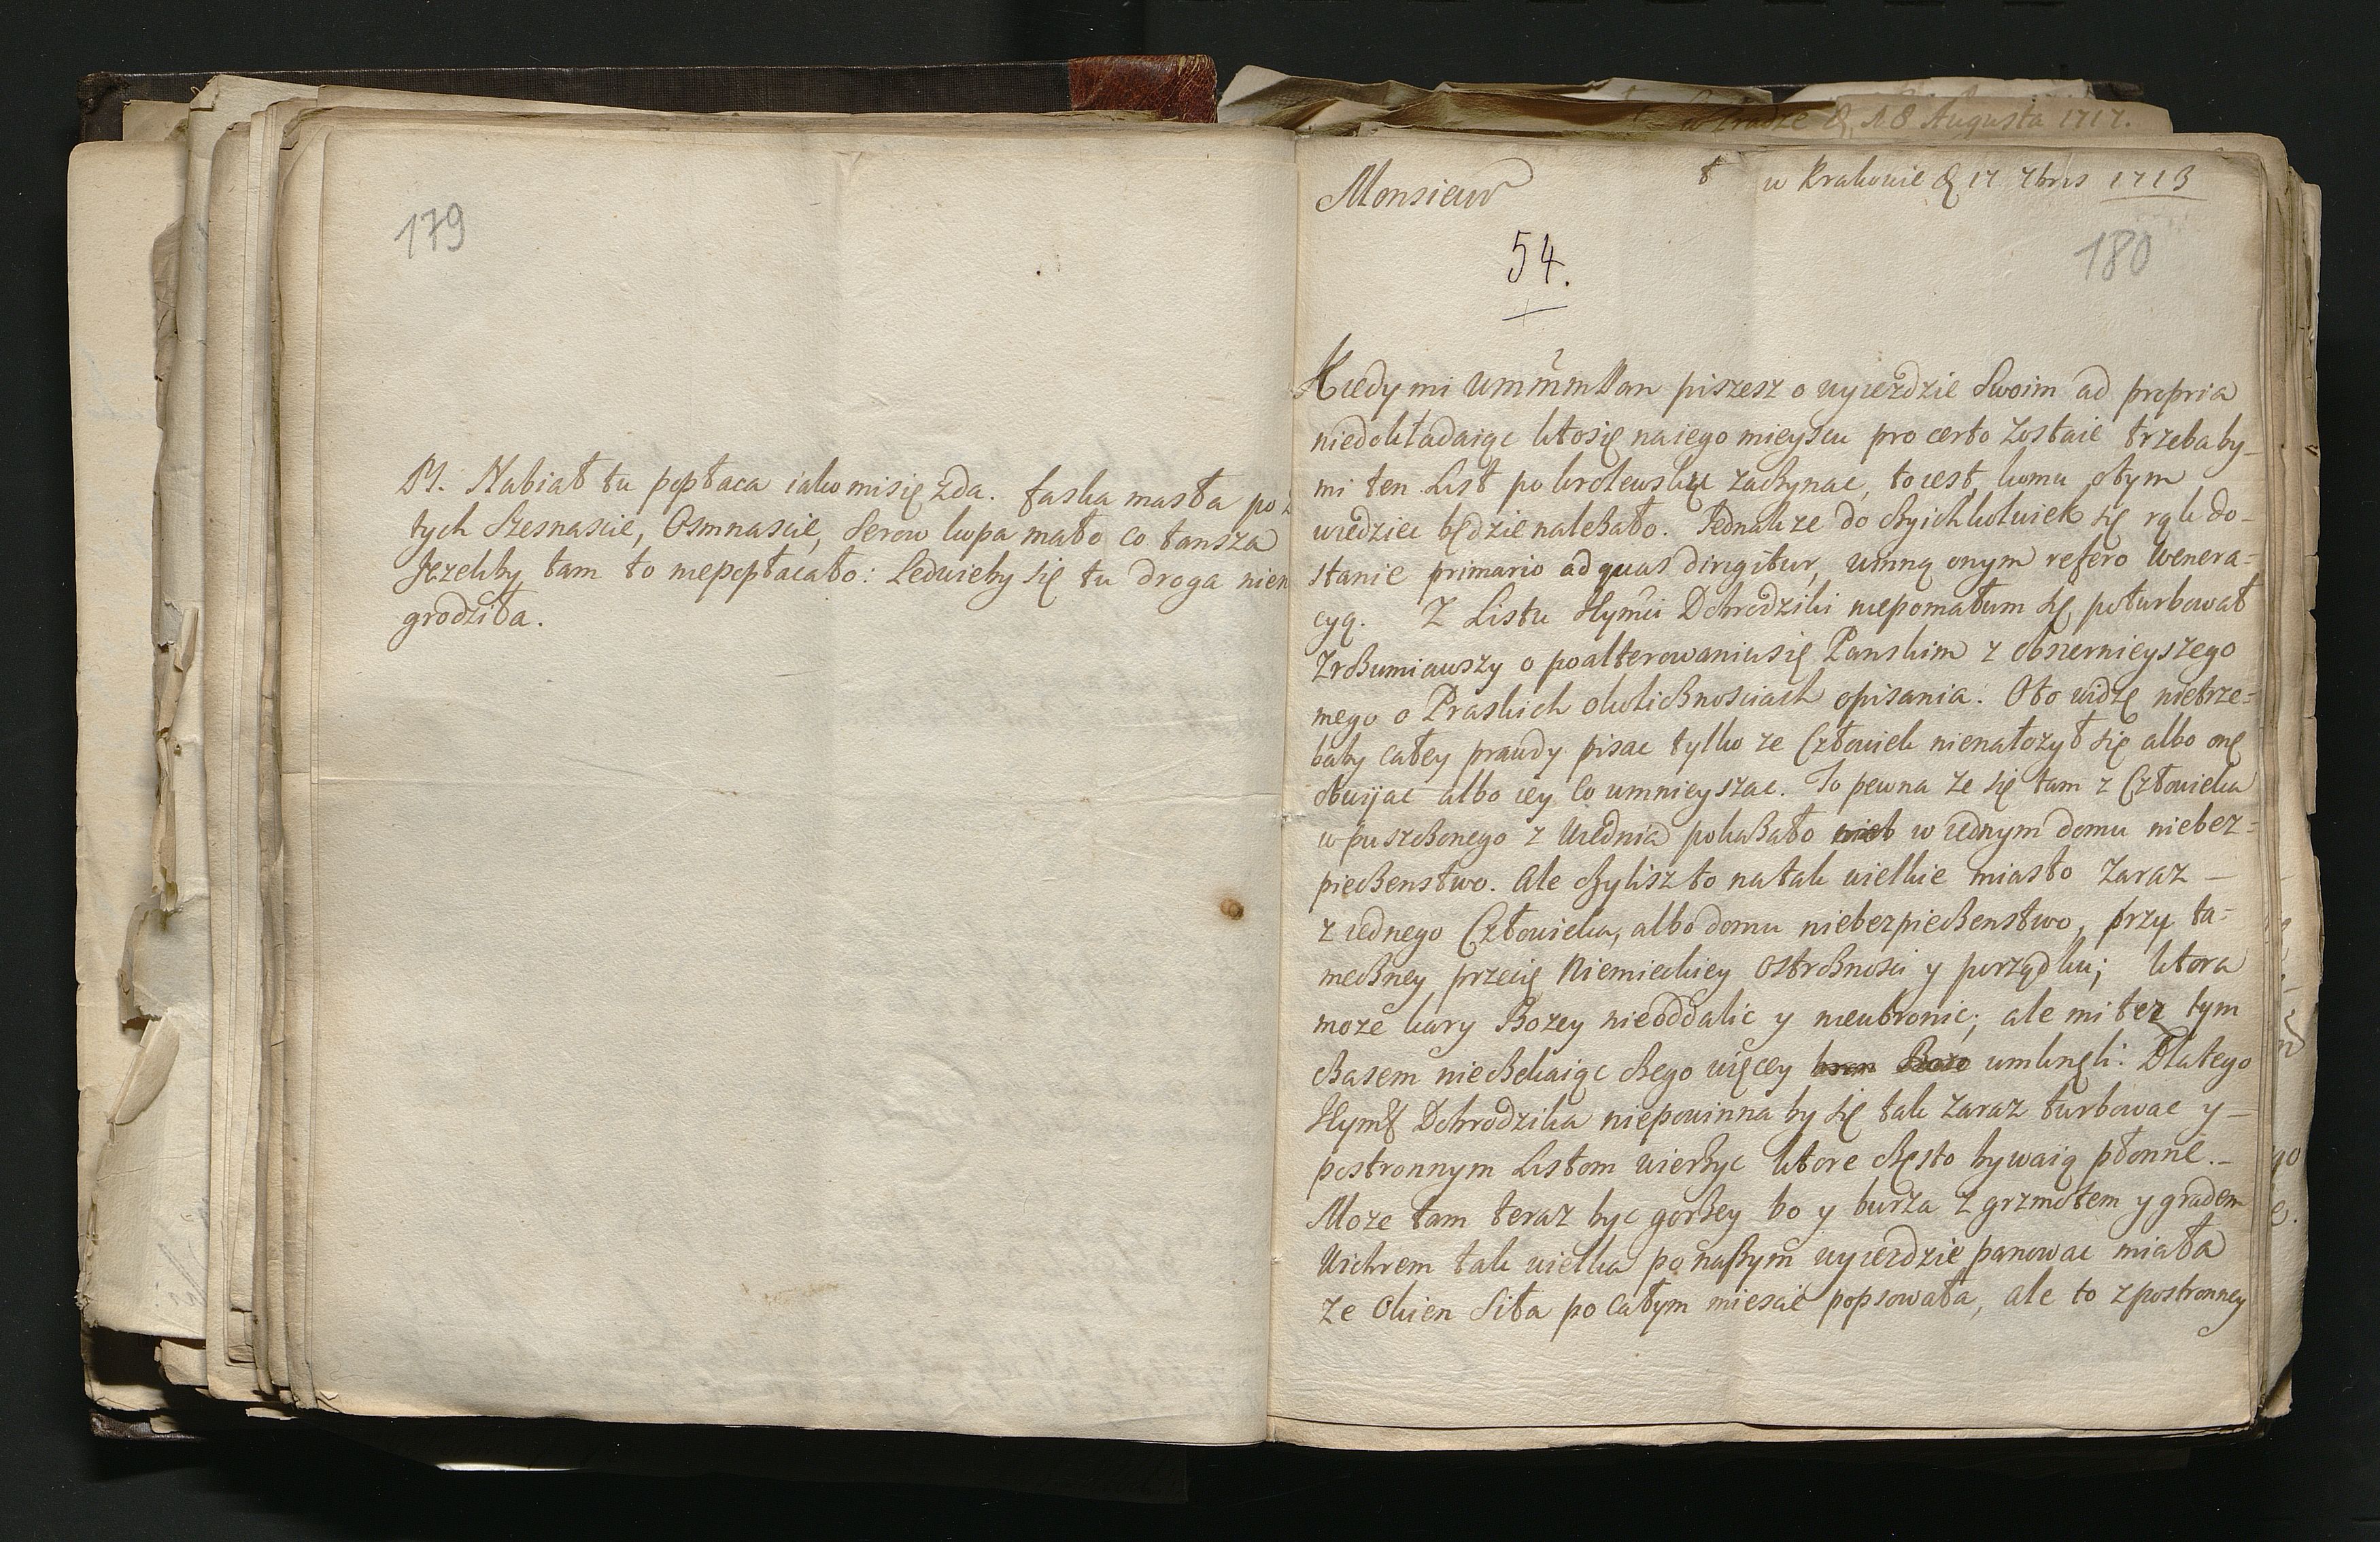 179
PS. Nabiał tu popłaca iako misię zda. faska masła po
tych Szesnascie, Osmnascie, Serow kopa mało co tansza
Jezeliby tam to niepopłacało: Ledwieby się tu droga
grodziła.
w Pradze 18 Augusta 1717.
Monsieur
w Krakowie 17 7bris 1713
54.
180
Kiedy mi piszesz o wyiezdzie Swoim ad propria
niedokładaiąc ktosię naiego mieyscu pro certo zostaie trzebaby
mi ten List po krolewsku zaczynac, toiest komu otym
wiedziec będzie nalezało. Jednakze do czyichkolwiek się rąk do-
stanie primario ad quas dirigitur, winną onym refero Wenera=
cyą. Z Listu Dobrodziki niepomałum się poturbował
Zrozumiawszy o poalterowaniusię Panskim z obszernieyszego
mego o Praskich okolicznosciach opisania. Oto widzę nietrze=
baby całey prawdy pisac tylko ze Człowiek nienałozył się albo onę
obwijac albo iey co umnieyszac. To pewna ze się tam z Człowieka
wpuszczonego z Wiednia pokazało w iednym domu niebez=
pieczenstwo. Ale czylisz to natak wielkie miasto zaraz
z iednego Człowieka, albo domu niebezpieczenstwo, przy ta=
meczney przecię Niemieckiey ostroznosci y porządku; ktora
moze kary Bozey nieoddalic y nieubronic; ale mi tez tym
czasem nieczekaiąc czego więcey umknęli. Dlatego
Dobrodzika niepowinna by się tak zaraz turbowac y
postronnym Listom wierzyc ktore często bywaią płonne.
Moze tam teraz byc gorzey bo y burza z grzmotem y gradem
Wichrem tak wielka po naszym wyiezdzie panowac miała
ze Okien siła po całym miescie popsowała, ale to z postronney